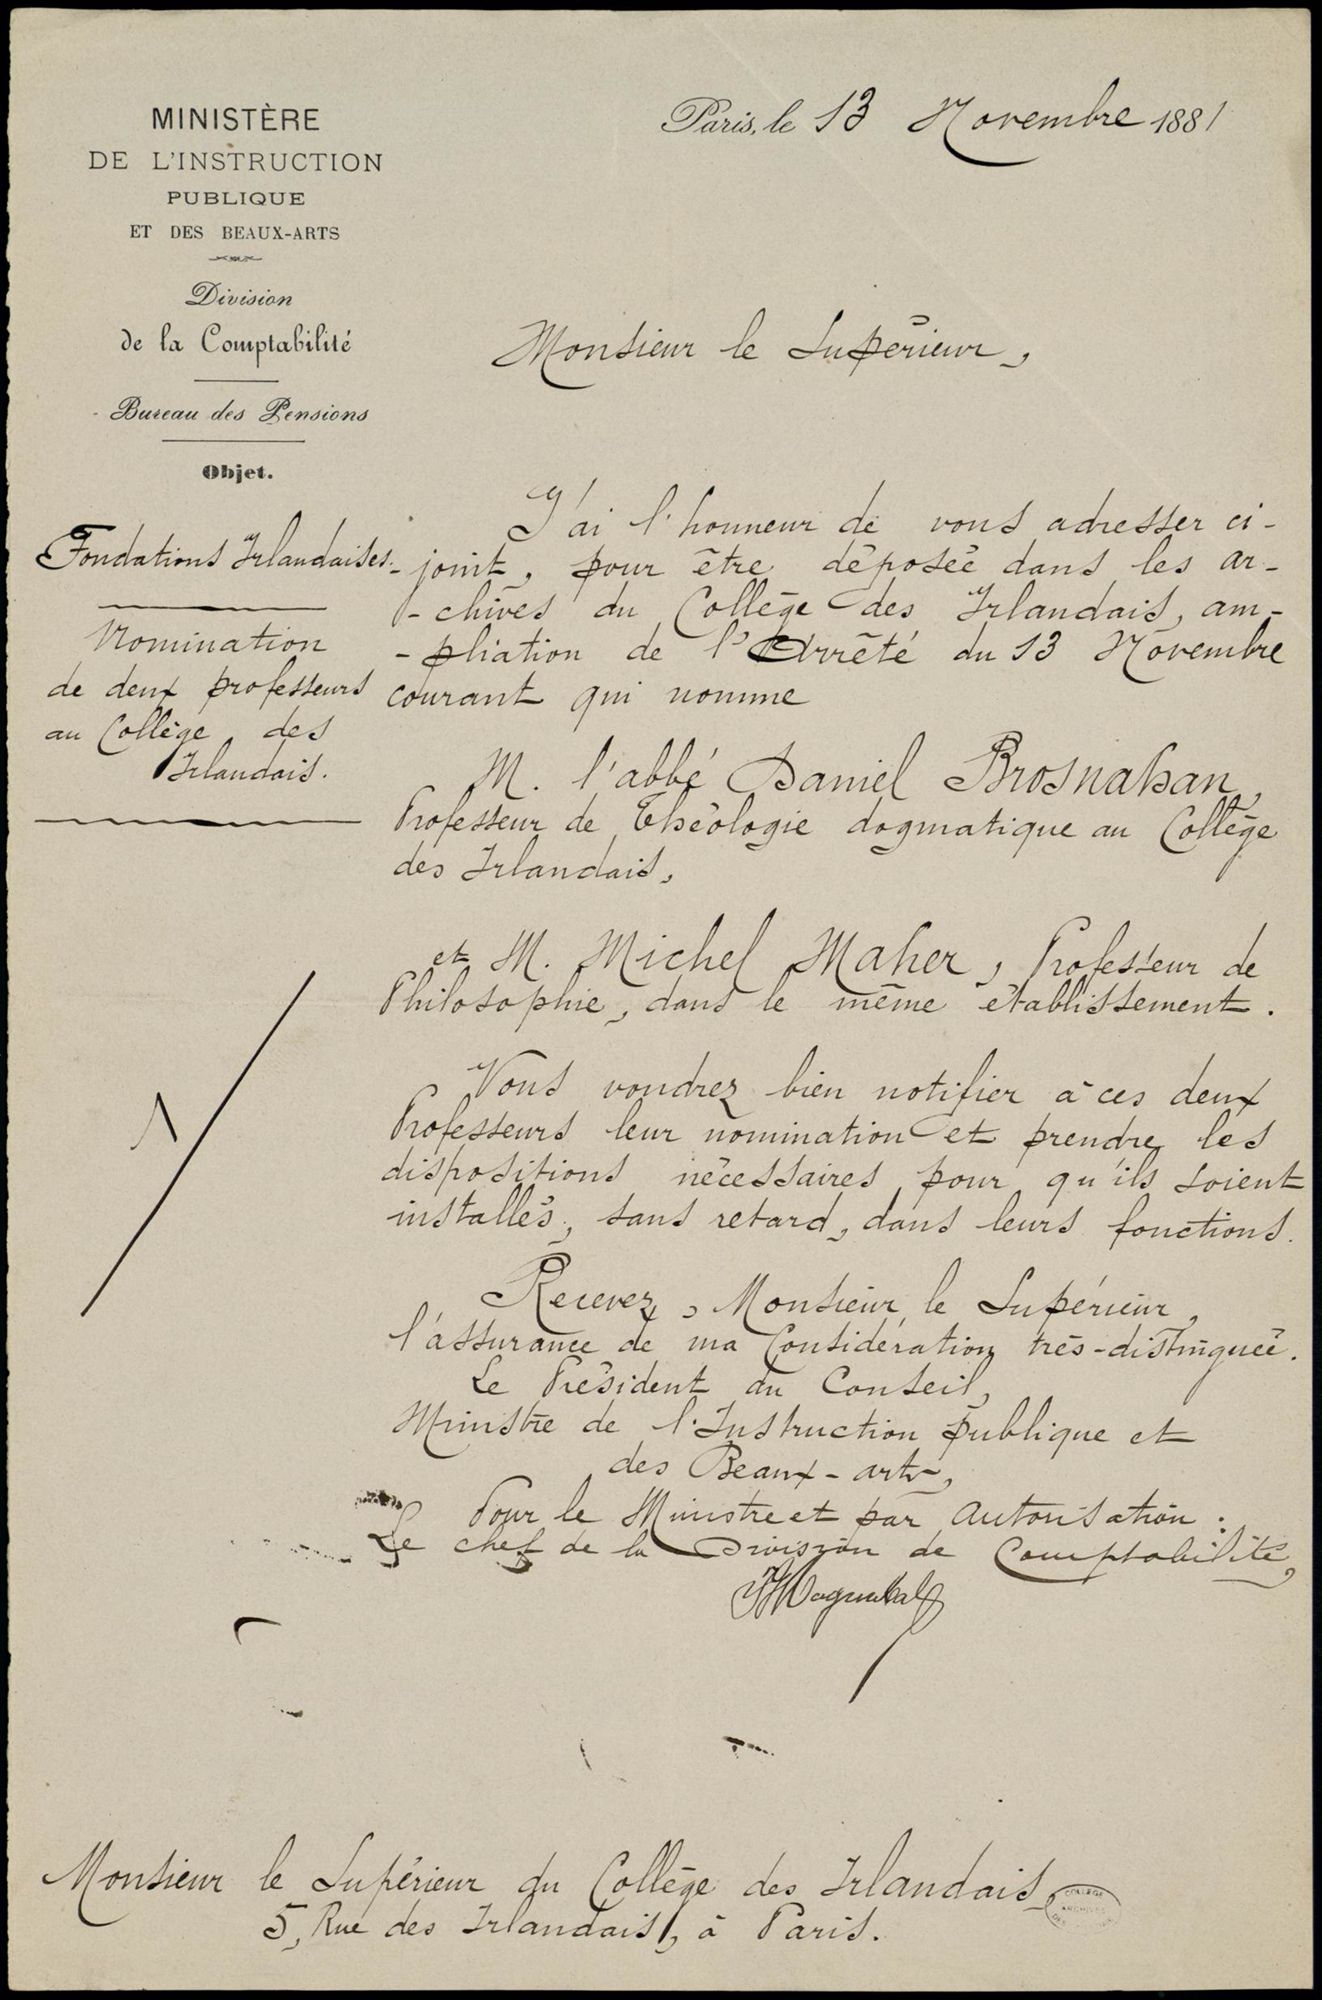 MINISTÈRE
DE L'INSTRUCTION
PUBLIQUE
ET DES BEAUX-ARTS
Division
de la Comptabilité
Bureau des Pensions
Objet.
Fondations Irlandaises.
Nomination
de deux professeurs
au Collège des
Irlandais.
Paris, le 13 Novembre 1881
Monsieur le Supérieur,
J'ai l'honneur de vous adresser ci-
-joint, pour être déposée dans les ar-
-chives du Collège des Irlandais, am-
-pliation de l'Arrêté du 13 Novembre
courant qui nomme
M. l'abbé Daniel Brosnahan,
Professeur de Théologie dogmatique au Collège
des Irlandais,
et M. Michel Maher, Professeur de
Philosophie, dans le même établissement.
Vous voudrez bien notifier à ces deux
Professeurs leur nomination et prendre les
dispositions nécessaires pour qu'ils soient
installés, sans retard, dans leurs fonctions.
Recevez, Monsieur le Supérieur,
l'assurance de ma Considération très-distinguée.
Le Président du Conseil,
Ministre de l'Instruction publique et
des Beaux-arts,
Pour le Ministre et par Autorisation :
Le chef de la Division de Comptabilité,
Monsieur le Supérieur du Collège des Irlandais,
5, Rue des Irlandais, à Paris.
COLLÈGE
ARCHIVES